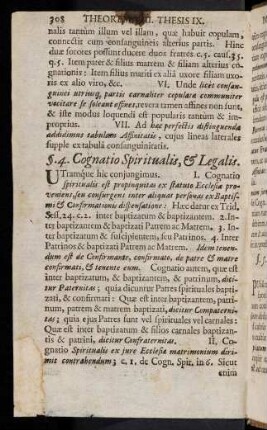 308 THEORIA XXI. THESIS IX.
nalis tantùm illum vel illam, quæ habuit copulam,
connectit cum consanguineis alterius partis. Hinc
duæ sorores possunt ducere duos fratres c.5. caus.35.
q.5. Item pater & filius matrem & filiam alterius co-
gnationis: Item filius mariti ex aliâ uxore filiam uxo-
ris ex alio viro, &c. VI. Unde licèt consan-
guinei utrinq; partis carnaliter copulatæ communiter
vocitare se soleant affines, revera tamen affines non sunt,
& iste modus loquendi est popularis tantùm & im-
proprius. VII. Ad hæc perfectius distinguenda
addidimus tabulam Affinitatis, cujus lineas laterales
supple ex tabulâ consanguinitatis.
§. 4. Cognatio Spiritualis, & Legalis.
UTramque hîc conjungimus. I. Cognatio
spiritualis est propinquitas ex statuto Ecclesiæ pro-
veniens, seu consurgens inter aliquas personas ex Baptis-
mi & Confirmationis dispensatione: Hæc datur ex Trid.
Sess. 24. c. 2. inter baptizatum & baptizantem. 2. In-
ter baptizantem & baptizati Patrem ac Matrem. 3. In-
ter baptizatum & suscipientem, seu Patrinos. 4. Inter
Patrinos & baptizati Patrem ac Matrem. Idem tenen-
dum est de Confirmante, confirmato, de patre & matre
confirmati, & tenente eum. Cognatio autem, quæ est
inter baptizatum, & baptizantem, & patrinum, dici-
tur Paternitas; quia dicuntur Patres spirituales bapti-
zati, & confirmati: Quæ est inter baptizantem, patri-
num, patrem & matrem baptizati, dicitur Compaterni-
tas; quia ejus Patres sunt vel spirituales vel carnales:
Quæ est inter baptizatum & filios carnales baptizan-
tis & patrini, dicitur Confraternitas. II. Co-
gnatio Spiritualis ex jure Ecclesiæ matrimonium diri-
mit contrahendum; c. 1. de Cogn. Spir. in 6. Sicut
etiam